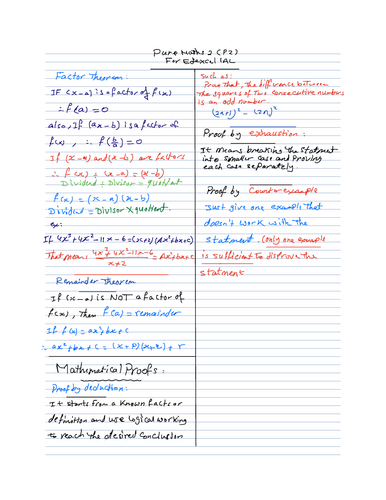 Pure Maths 2 (P2)
For Edexcel IAL
Factor Theorem:
IF (x-a) is a factor of f(x)
∴ f(a) = 0
also, If (ax-b) is a factor of
f(x), ∴ f(b/a) = 0
If (x-a) and (x-b) are factors
∴ f(x) ÷ (x-a) = (x-b)
Dividend ÷ Divisor = quotient
f(x) = (x-a)(x-b)
Dividend = Divisor x quotient.
ex:
If 4x³+4x²-11x-6=(x+2)(Ax²+bx+c)
That means (4x³+4x²-11x-6)/(x+2) = Ax²+bx+c
Remainder Theorem
If (x-a) is NOT a factor of
f(x), Then f(a) = remainder
If f(x) = ax²+bx+c
∴ ax²+bx+c = (x+p)(x+q)+r
Mathematical Proofs:
Proof by deduction:
It starts from a known facts or
definition and use logical working
to reach the desired conclusion
such as:
Prove that, the difference between
the squares of two consecutive numbers
is an odd number
(2n+1)² - (2n)²
Proof by exhaustion:
It means breaking the statment
into smaller case and proving
each case separately.
Proof by Counter example
Just give one example that
doesn't work with the
statment. (only one example
is sufficient to disprove the
statment